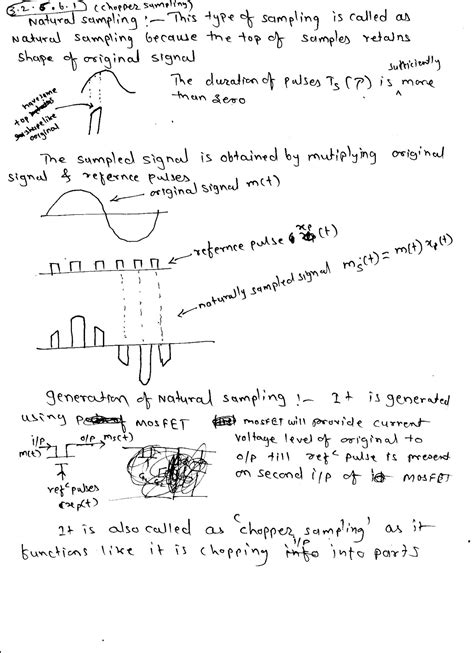 3.2.6.6.1) (chopper sampling)
Natural sampling :- This type of sampling is called as
Natural sampling because the top of samples retains
shape of original signal
The duration of pulses Ts (τ) is sufficiently more
than zero
have some
top
share like
original
The sampled signal is obtained by mutiplying original
signal & refernce pulses
original signal m(t)
refernce pulse xp(t)
naturally sampled signal ms(t) = m(t) xp(t)
generation of Natural sampling :- It is generated
using MOSFET
MOSFET will provide current
voltage level of original to
o/p till refᶜ pulse is present
on second i/p of MOSFET
i/p
m(t)
o/p ms(t)
refᶜ pulses
xp(t)
It is also called as 'chopper sampling' as it
functions like it is chopping i/p into parts